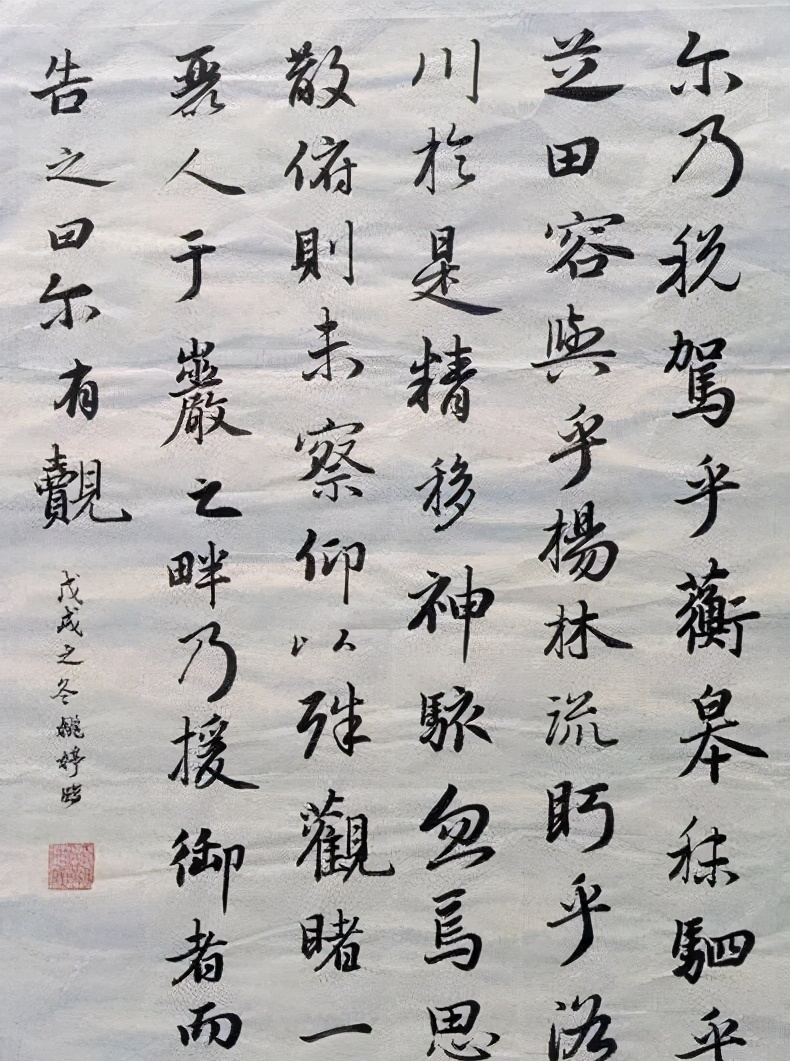 尔乃税駕乎蘅皋秣駟乎
芝田容與乎楊林流眄乎洛
川於是精移神駭忽焉思
散俯則未察仰以殊觀睹一
麗人于巖之畔乃援御者而
告之曰尔有覿
戊戌之冬姚婷臨